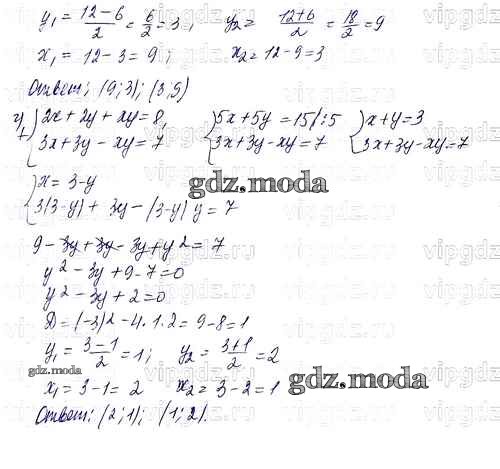 y₁ = (12-6)/2 = 6/2 = 3; y₂ = (12+6)/2 = 18/2 = 9
x₁ = 12-3 = 9; x₂ = 12-9 = 3
Ответ: (9;3); (3;9)
4) { 2x+2y+xy=8, { 5x+5y=15/:5 { x+y=3
{ 3x+3y-xy=7 { 3x+3y-xy=7 { 3x+3y-xy=7
{ x=3-y
{ 3(3-y)+3y-(3-y)y=7
gdz.moda
9-3y+3y-3y+y²=7
y²-3y+9-7=0
y²-3y+2=0
D=(-3)²-4·1·2=9-8=1
y₁ = (3-1)/2 = 1; y₂ = (3+1)/2 = 2
gdz.moda
gdz.moda
x₁=3-1=2 x₂=3-2=1
Ответ: (2;1); (1;2).
vipgdz